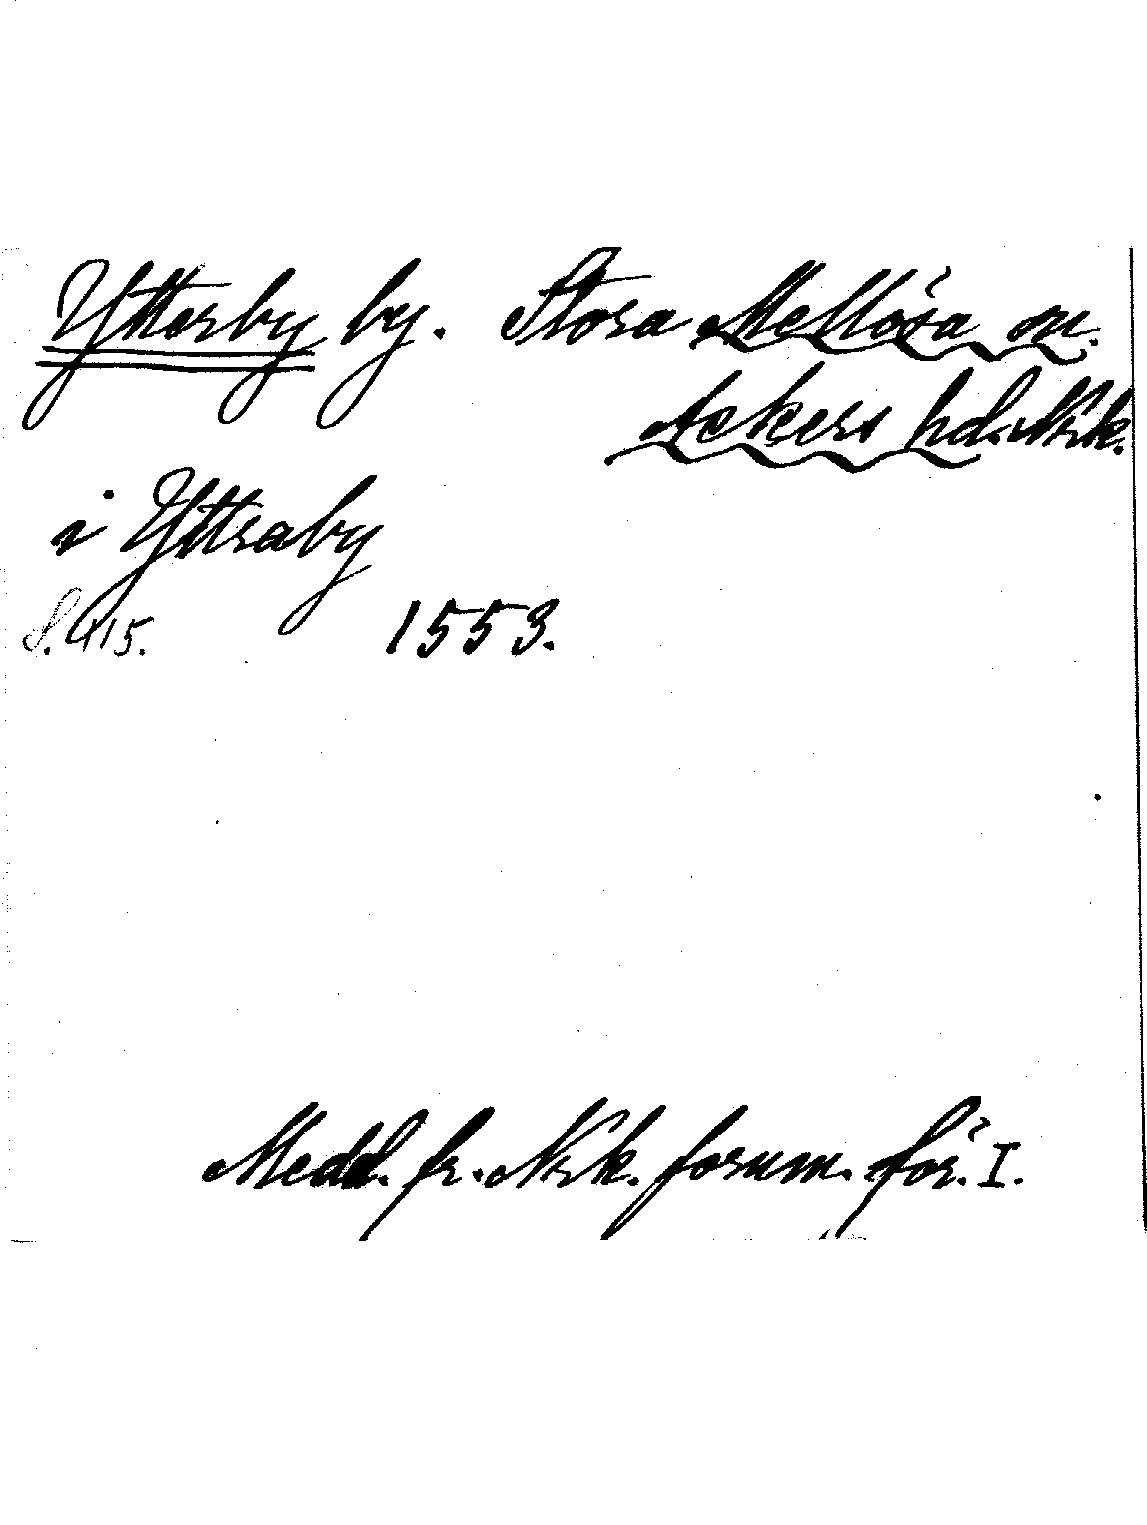 Ytterby by. Stora Mellösa sn.
Askers hd. Nrk.
i Yttraby
S. 115. 1553.
Medd. fr. Nrk. fornm. för. I.